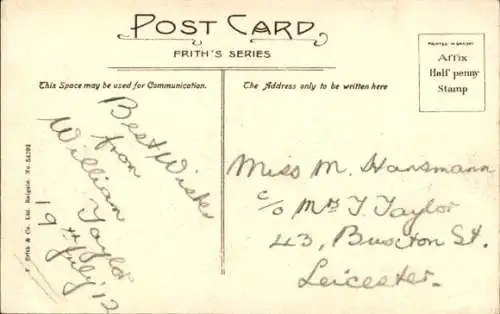 POST CARD
FRITH'S SERIES
This Space may be used for Communication.
The Address only to be written here
PRINTED IN SAXONY
Affix
Half penny
Stamp
Best Wishes
from
William
Taylor
19th July '12
Miss M. Hansmann
c/o Mrs T Taylor
43, Buxton St.
Leicester.
F. Frith & Co. Ltd. Reigate. No.